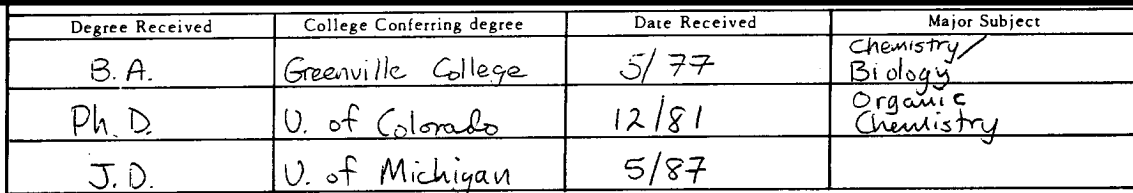 Degree Received College Conferring degree Date Received Major Subject
B.A. Greenville College 5/77 Chemistry/
Biology
Ph.D. U. of Colorado 12/81 Organic
Chemistry
J.D. U. of Michigan 5/87